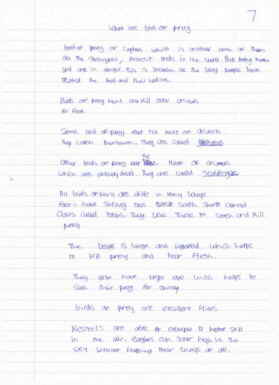 7
What are bird of prey
bird of prey or raptors which is another name for them
are the strongest, bravest birds in the world. But being brave
and are in danger. this is because of the way people have
treated the bird and their habitat.
Birds of prey hunt and kill other animals
for food.
Some bird of prey eat the meat on animals
they catch themselves. They are called
Other birds of prey eat the flesh of animals
which are already dead. They are called scavengers
All birds of prey are alike in many ways
their have strong feet with sharp curved
claws called talons. They use these to catch and kill
prey
The beak is large and hooked which helps
to kill prey and tear flesh.
They also have large eye which helps to
see their prey far away
birds of prey are excellent fliers
Kestrel's are able to to hover still
in the air. Eagles can soar high in the
sky without flapping their wings at all.